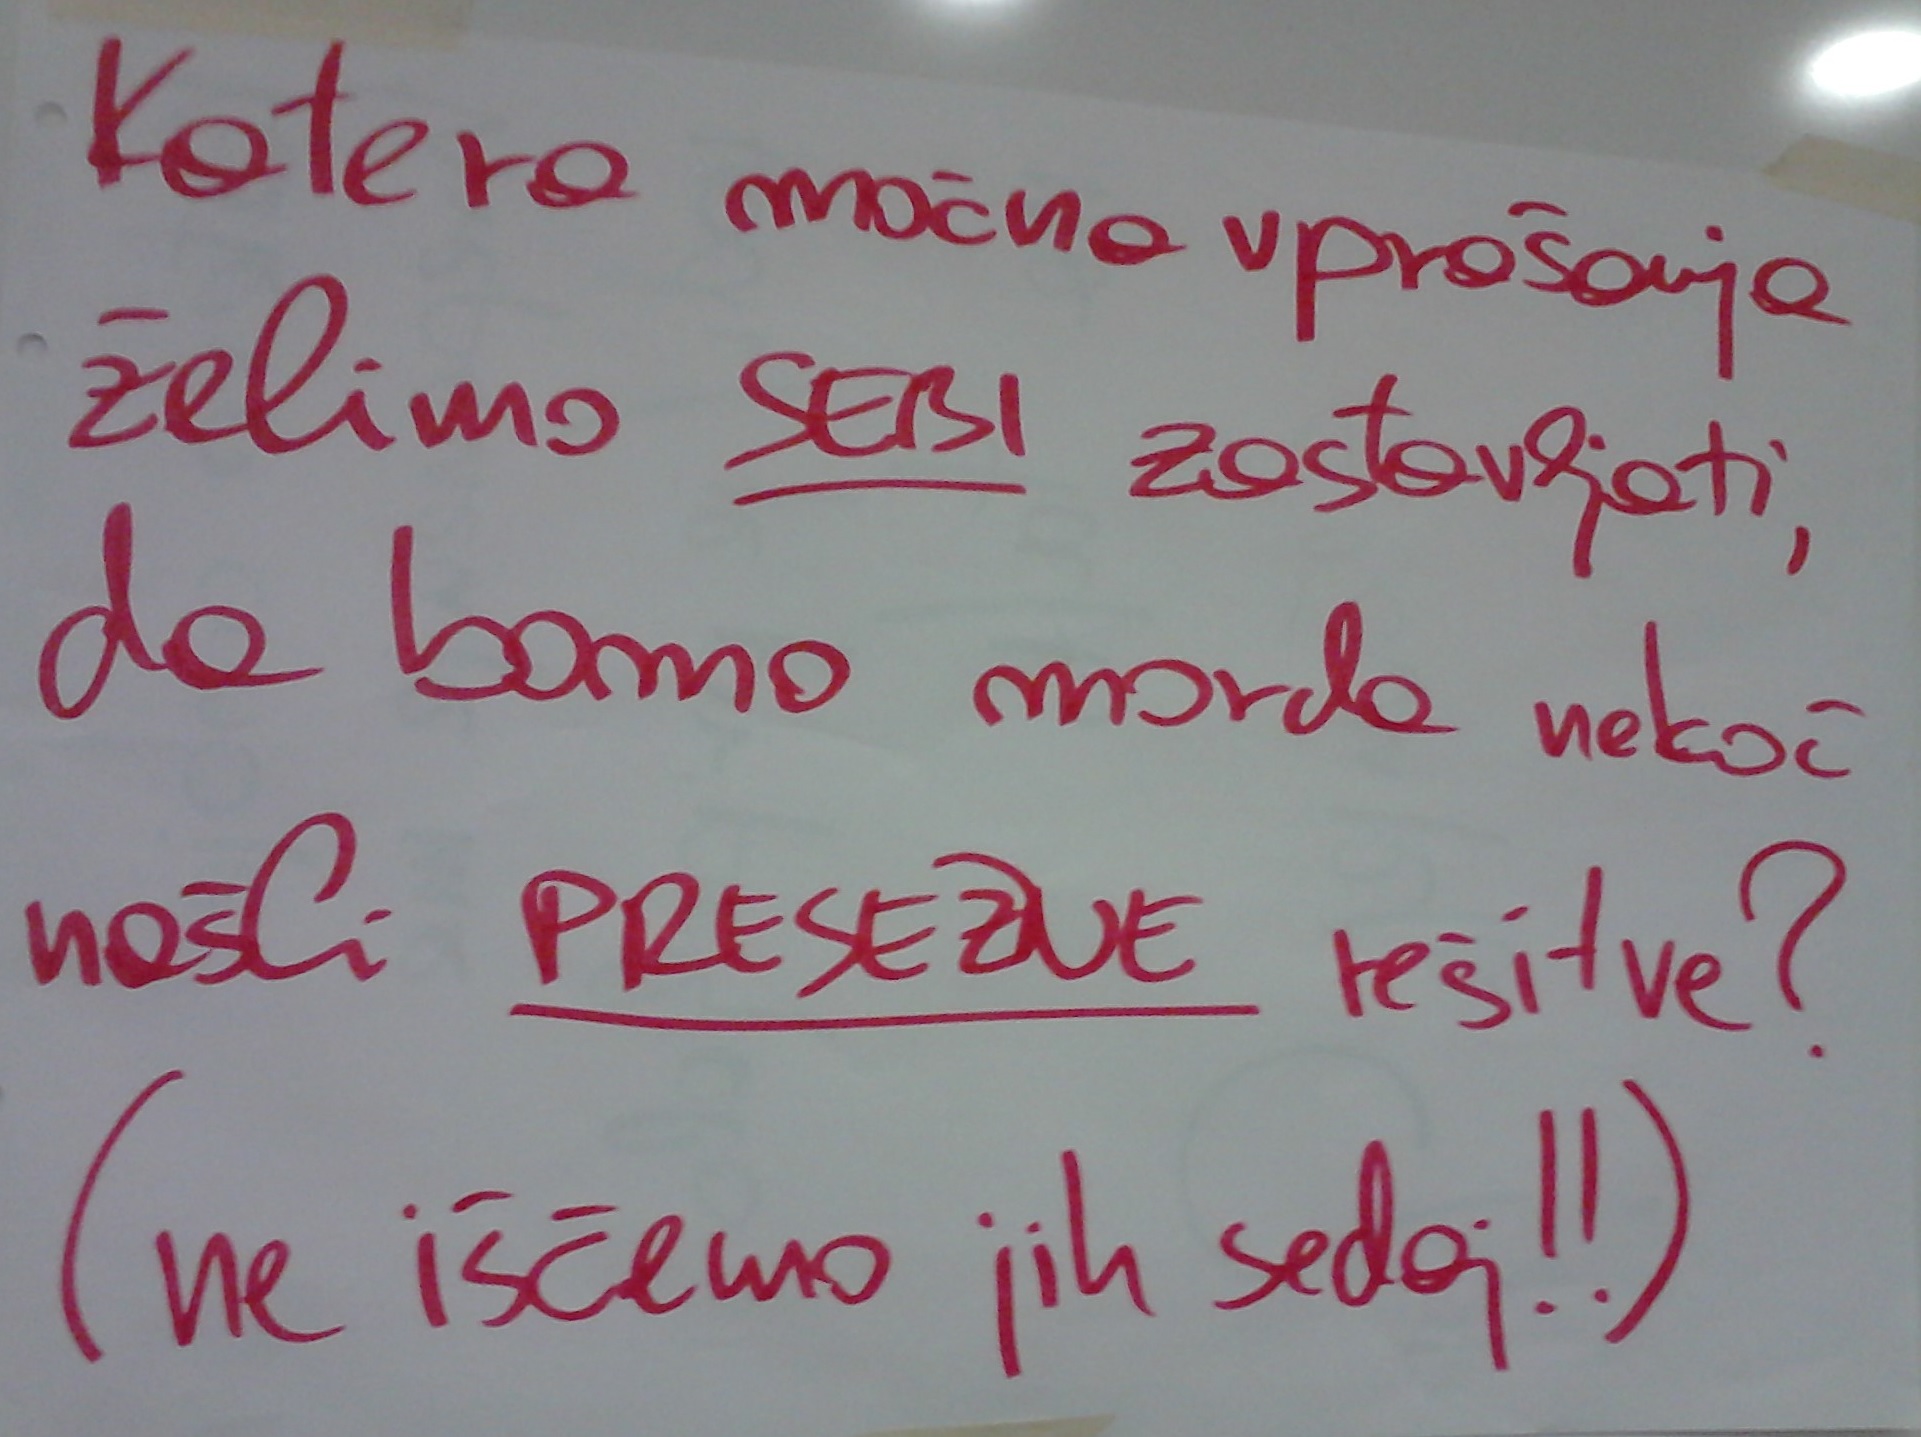 Katera močna vprašanja
želimo SEBI zastavljati,
da bomo morda nekoč
našli PRESEŽNE rešitve?
(ne iščemo jih sedaj!!)